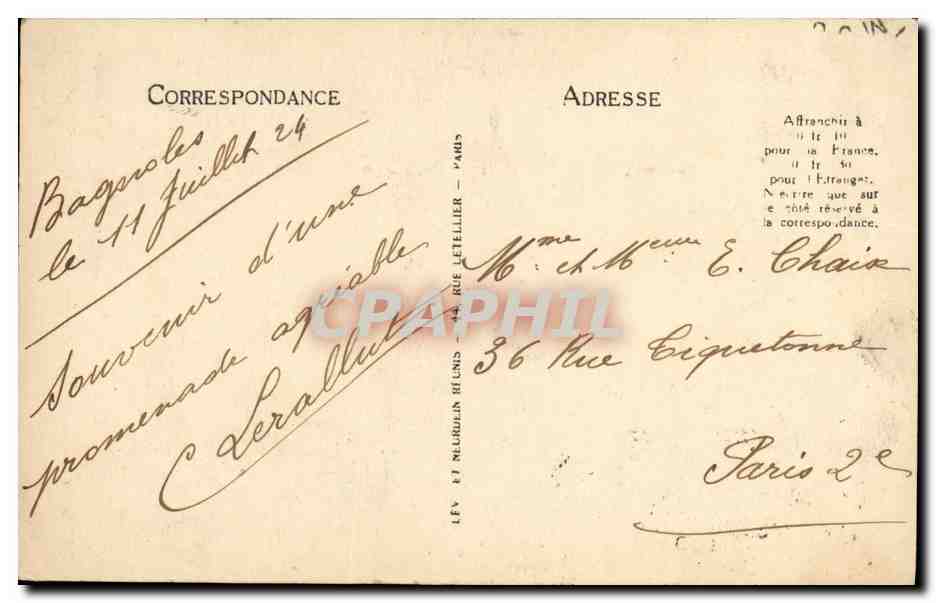 CORRESPONDANCE
Bagnoles
le 11 Juillet 24
Souvenir d'une
promenade agréable
LÉV ET NEURDEIN RÉUNIS - 44, RUE LETELLIER - PARIS
ADRESSE
Affranchir à
pour la France.
pour l'Etranger.
N'écrire que sur
le côté réservé à
la correspondance.
Mme et Mr E. Chaix
36 Rue Tiquetonne
Paris 2e
CPARHIL